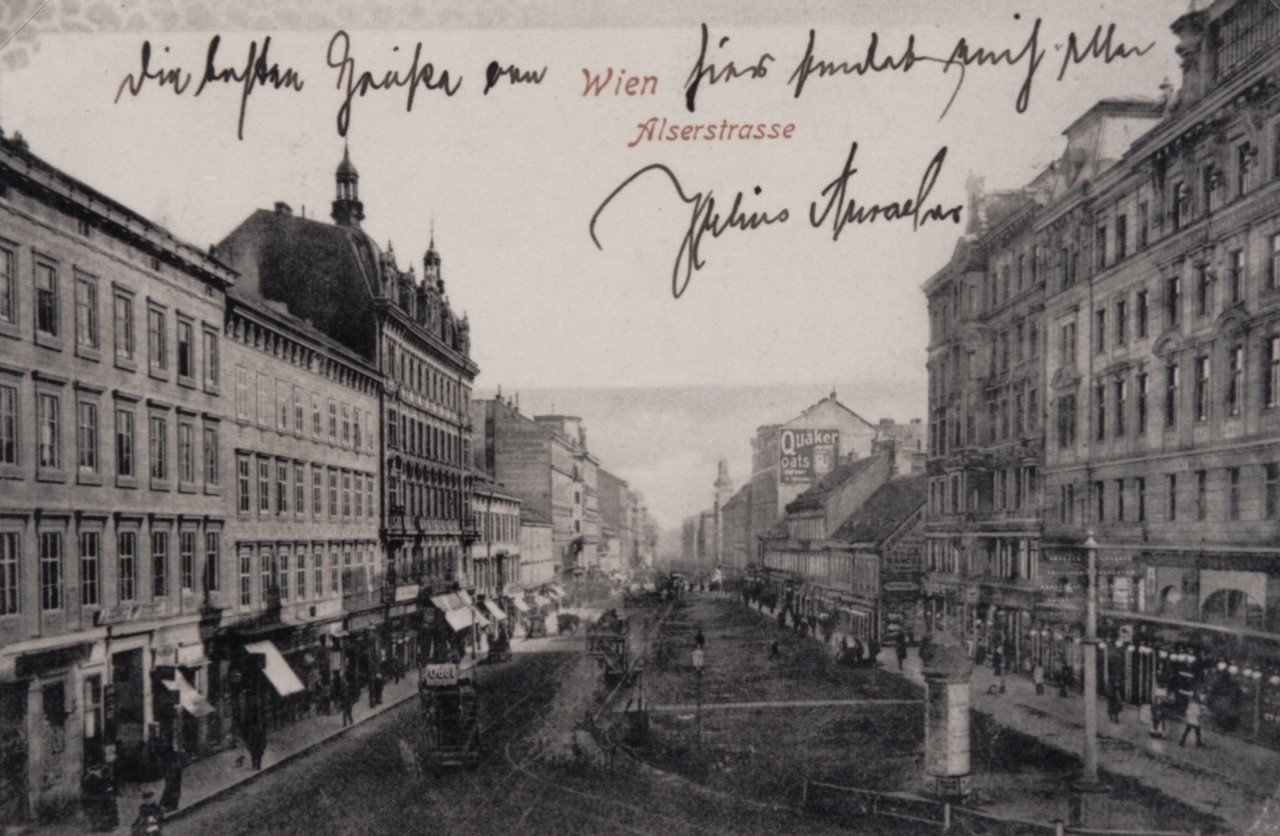 die besten Grüße von Wien hier sendet euch Allen
Alserstrasse
Julius
Quaker
oats
Odol